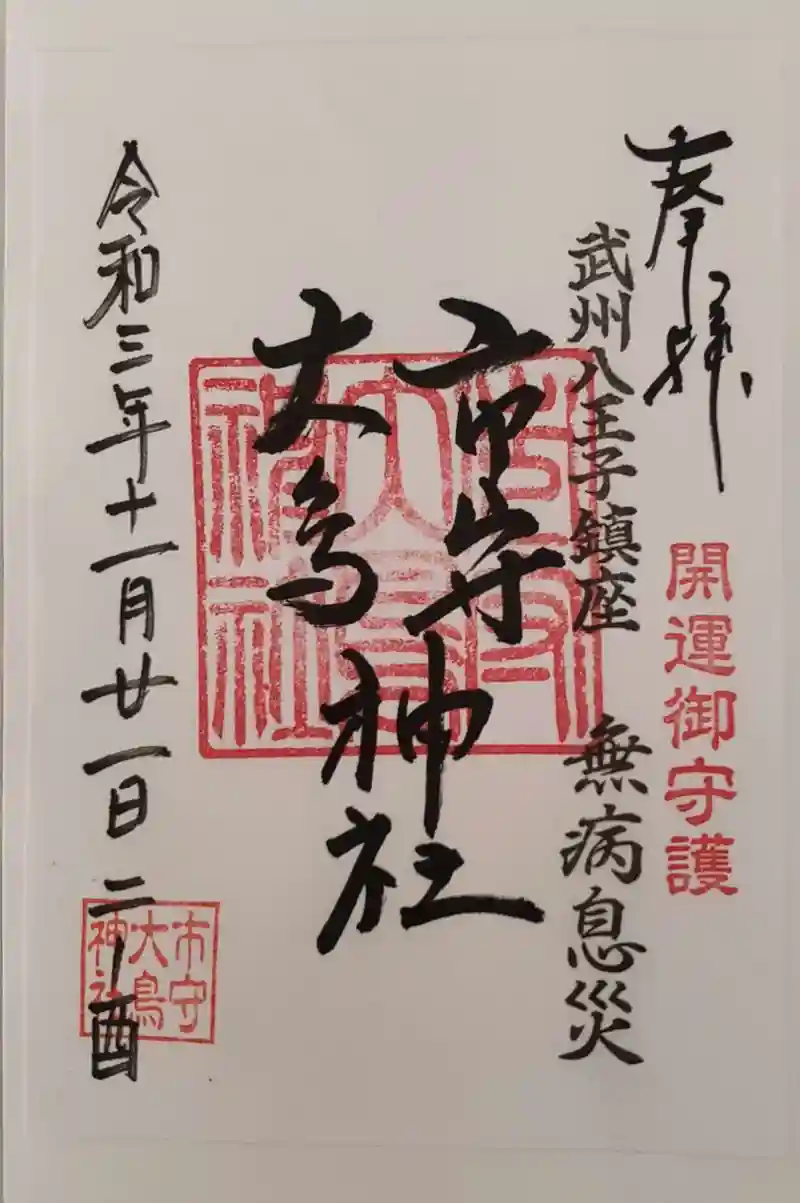 奉拝
開運御守護
武州八王子鎮座 無病息災
市守
大鳥
神社
令和三年十一月廿一日 二ノ酉
市守
大鳥
神社